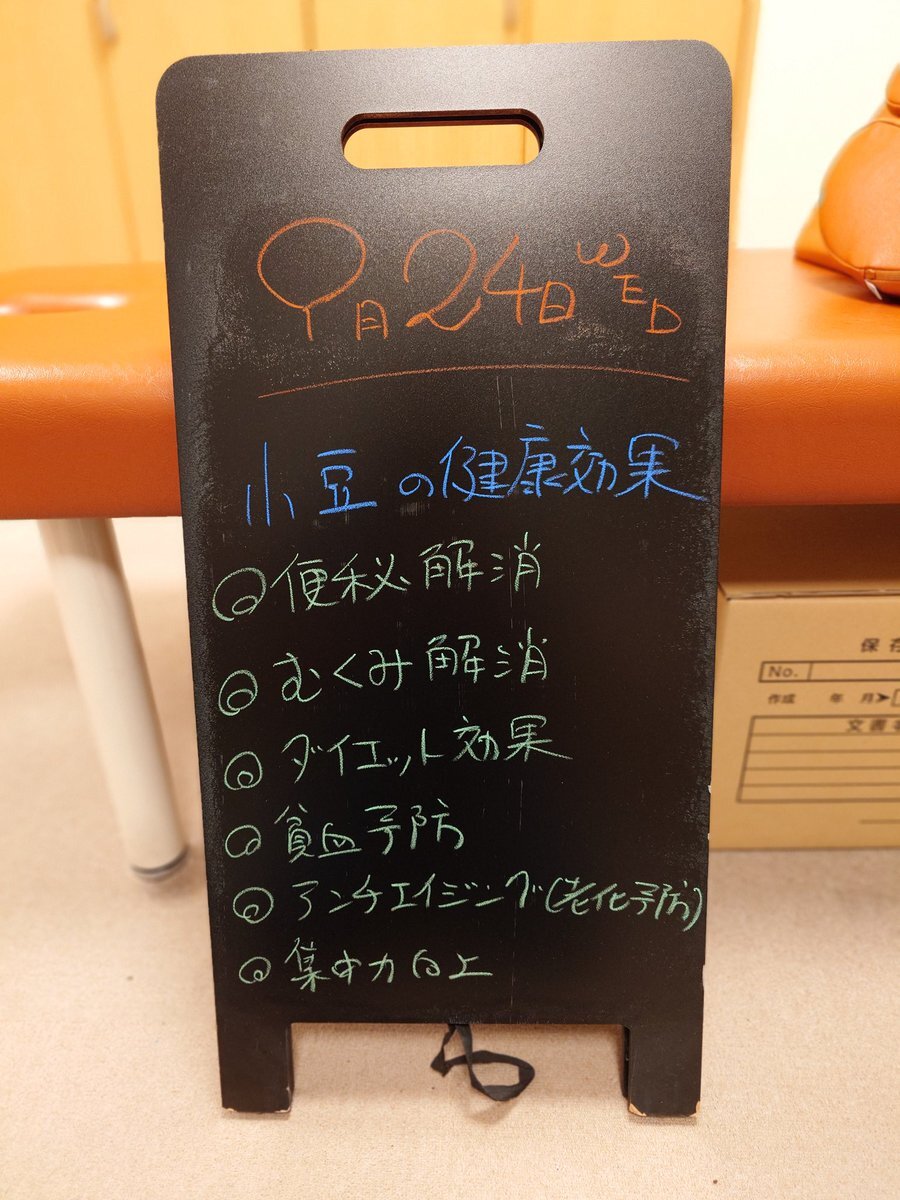 9月24日 WED
小豆の健康効果
◎便秘解消
◎むくみ解消
◎ダイエット効果
◎貧血予防
◎アンチエイジング(老化予防)
◎集中力向上
保存
No.
作成 年 月➤
文書